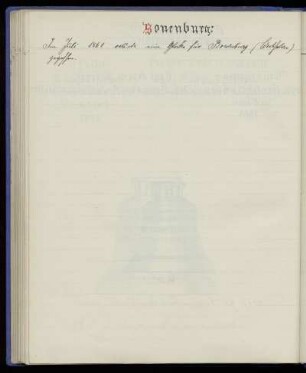 Bonenburg:
Im Juli 1861 wurde eine Glocke für Bonenburg (Westfalen)
gegossen.